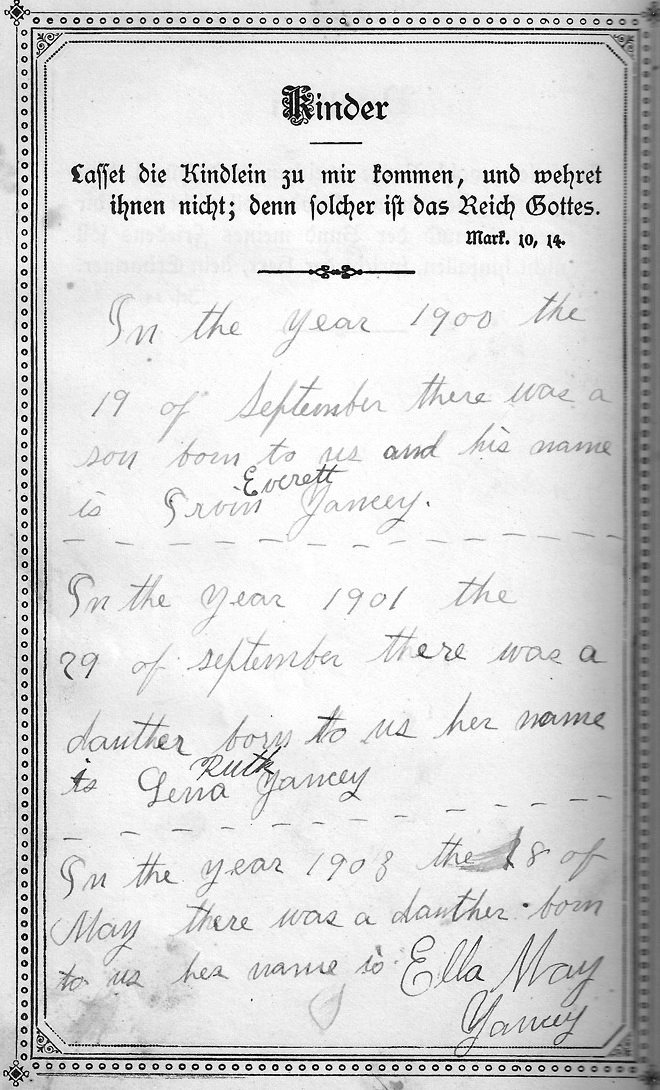 Kinder
Lasset die Kindlein zu mir kommen, und wehret
ihnen nicht; denn solcher ist das Reich Gottes.
Mark. 10, 14.
In the year 1900 the
19 of September there was a
son born to us and his name
Everett
is Irvin Yancey.
In the year 1901 the
29 of september there was a
dauther born to us her name
Ruth
is Lena Yancey
In the year 1903 the 18 of
May there was a dauther born
to us her name is Ella May
Yancey